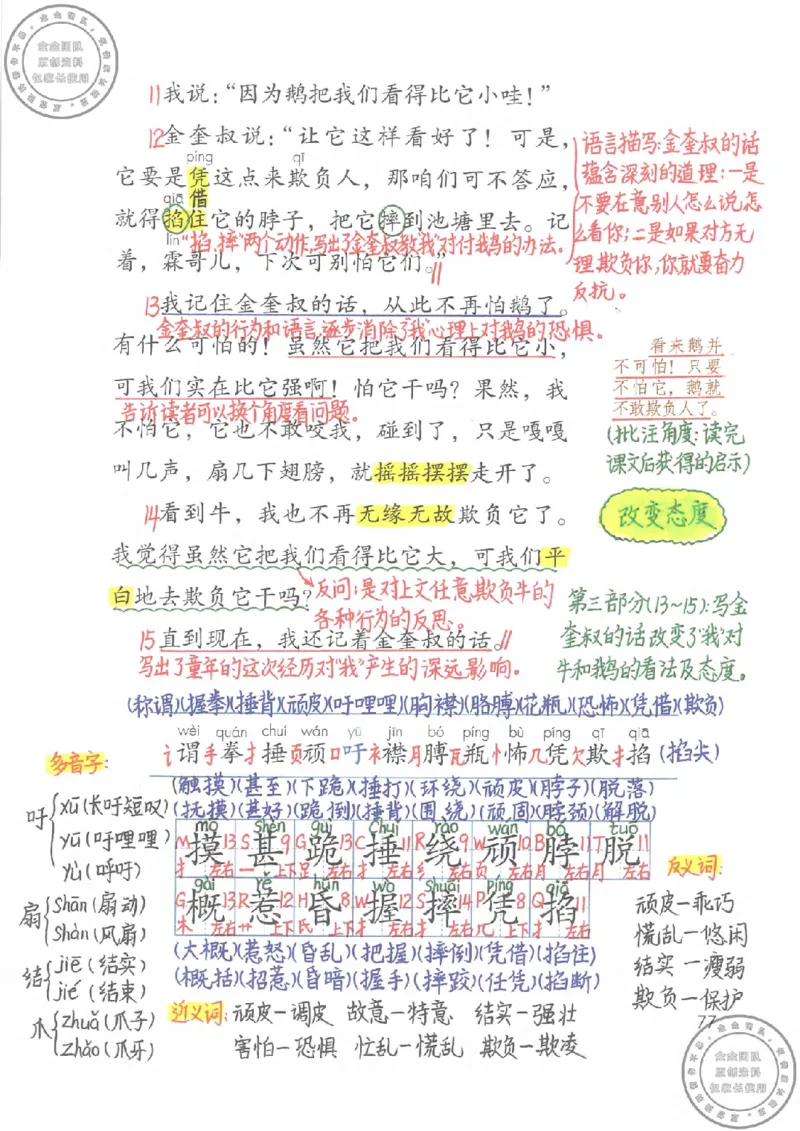 金金团队
原创资料
仅家长使用
11我说：“因为鹅把我们看得比它小哇！”
12金奎叔说：“让它这样看好了！可是，
píng qī
它要是凭这点来欺负人，那咱们可不答应，
qiā 借
就得掐住它的脖子，把它摔到池塘里去。记
“掐、摔”两个动作，写出了金奎叔教“我”对付我鹅的办法。
lín
着，霖哥儿，下次可别怕它们。”
语言描写：金奎叔的话
蕴含深刻的道理：一是
不要在意别人怎么说，怎
么看你；二是如果对方无
理欺负你，你就要奋力
反抗。
13我记住金奎叔的话，从此不再怕鹅了。
金奎叔的行为和语言，逐步消除了“我”心理上对鹅的恐惧。
有什么可怕的！虽然它把我们看得比它小，
可我们实在比它强啊！怕它干吗？果然，我
告诉读者可以换个角度看问题。
不怕它，它也不敢咬我，碰到了，只是嘎嘎
叫几声，扇几下翅膀，就摇摇摆摆走开了。
看来鹅并
不可怕！只要
不怕它，鹅就
不敢欺负人了。
(批注角度：读完
课文后获得的启示)
14看到牛，我也不再无缘无故欺负它了。
改变态度
我觉得虽然它把我们看得比它大，可我们平
白地去欺负它干吗？
反问：是对上文任意欺负牛的
各种行为的反思。
15直到现在，我还记着金奎叔的话。
写出了童年的这次经历对“我”产生的深远影响。
第三部分(13~15)：写金
奎叔的话改变了“我”对
牛和鹅的看法及态度。
(称谓)(握拳)(捶背)(顽皮)(吁哩哩)(胸襟)(胳膊)(花瓶)(恐怖)(凭借)(欺负)
wèi quán chuí wán yū jīn bó píng bù píng qī qiā
讠谓手拳扌捶页顽口吁衤襟月膊瓦瓶忄怖几凭欠欺扌掐(掐尖)
(触摸)(甚至)(下跪)(捶打)(环绕)(顽皮)(脖子)(脱落)
(抚摸)(甚好)(跪倒)(捶背)(围绕)(顽固)(脖颈)(解脱)
mō shèn guì chuí rào wán bó tuō
M摸13 S甚9 G跪13 C捶11 R绕9 W顽10 B脖11 T脱11
扌左右 一上下 足左右 扌左右 纟左右 页左右 月左右 月左右
gài rě hūn wò shuāi píng qiā
G概13 R惹12 H昏8 W握12 S摔14 P凭8 Q掐11
木左右 艹上下 氏上下 扌左右 扌左右 几上下 扌左右
(大概)(惹怒)(昏乱)(把握)(摔倒)(凭借)(掐住)
(概括)(招惹)(昏暗)(握手)(摔跤)(任凭)(掐断)
多音字：
吁 xū(长吁短叹)
yū(吁哩哩)
yù(呼吁)
扇 shān(扇动)
shàn(风扇)
结 jiē(结实)
jié(结束)
爪 zhuǎ(爪子)
zhǎo(爪牙)
反义词：
顽皮—乖巧
慌乱—悠闲
结实—瘦弱
欺负—保护
近义词：顽皮—调皮 故意—特意 结实—强壮
害怕—恐惧 忙乱—慌乱 欺负—欺凌
77
金金团队
原创资料
仅家长使用